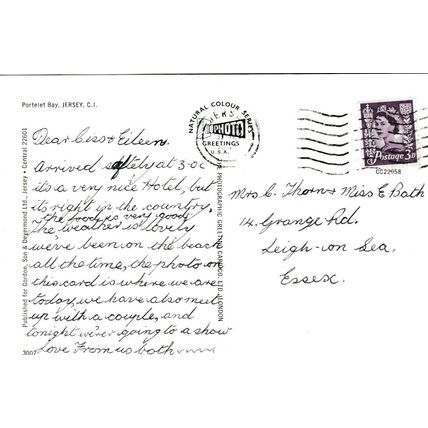 Portelet Bay, JERSEY, C.I.
Dear Ciss & Eileen.
Arrived safely at 3.0c
its a very nice Hotel, but
its right in the country,
the food is very good
the weather is lovely
we've been on the beach
all the time, the photo on
this card is where we are
today, we have also met
up with a couple, and
tonight we're going to a show
Love From us both
3007
Published by Gordon, Son & Degermond Ltd., Jersey • Central 22601
THE PHOTOGRAPHIC GREETING CARD CO. LTD., LONDON
NATURAL COLOUR SERIES
PHOTO
GREETINGS
U.S.A.
Postage 3D
CC22958
Mrs C. Thorn & Miss E Bath
14. Grange Rd.
Leigh-on Sea.
Essex.